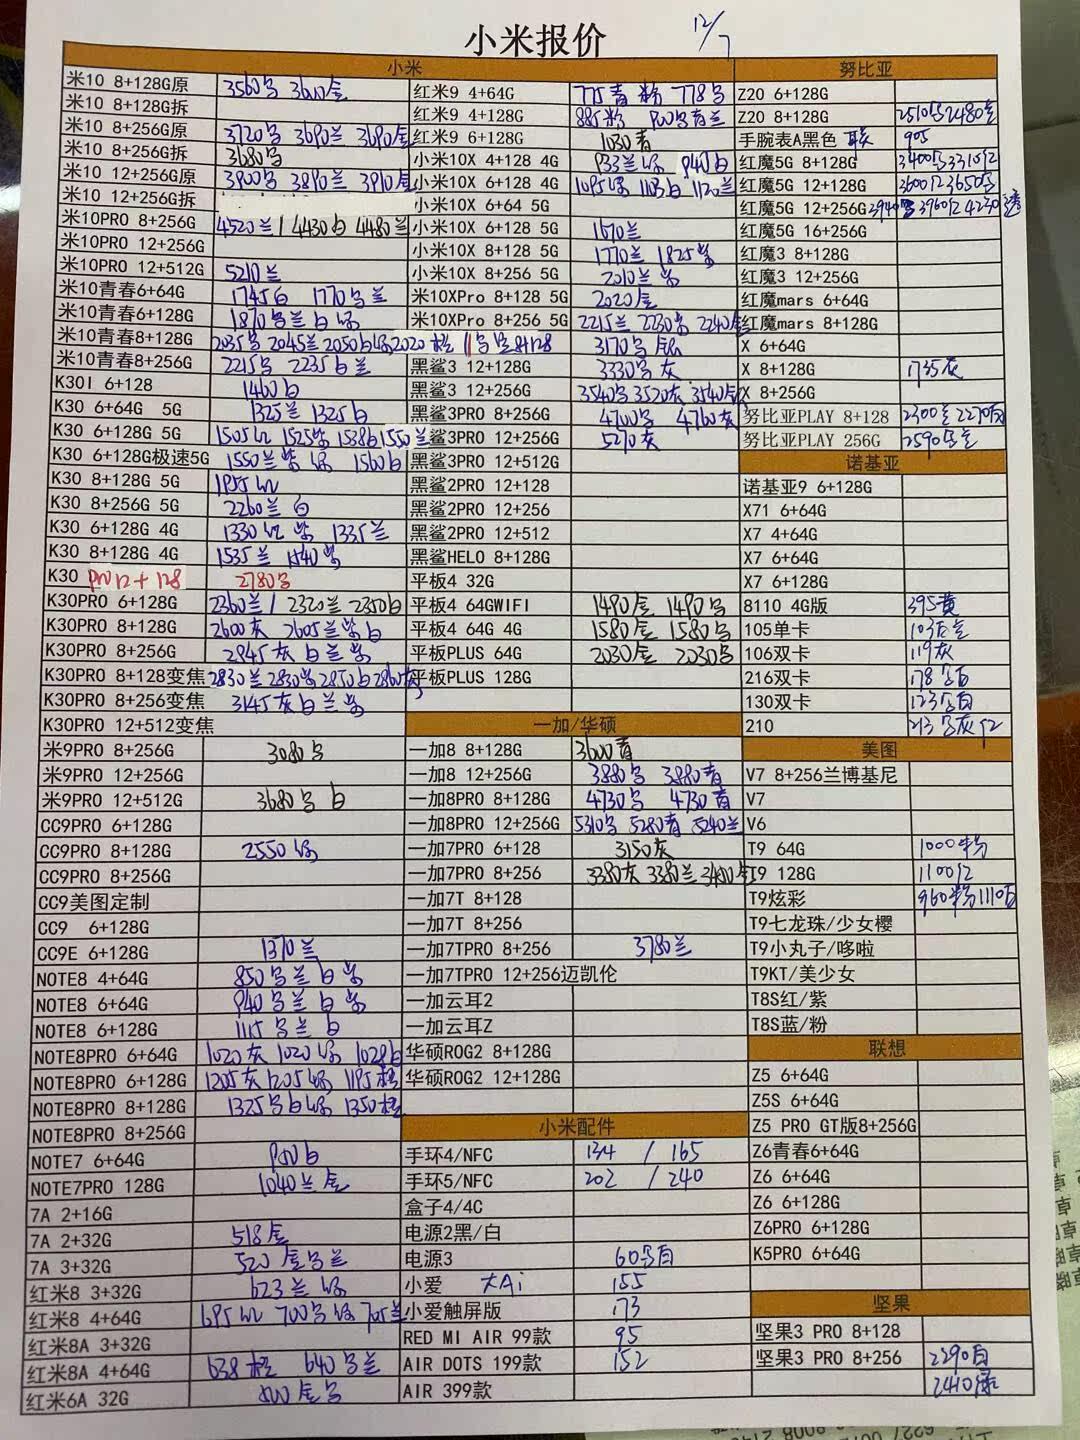 小米报价 12/7
小米 努比亚
米10 8+128G原 3560 3600金 红米9 4+64G 775青 粉 778 Z20 6+128G
米10 8+128G拆 红米9 4+128G 885粉 Z20 8+128G 2510 2480
米10 8+256G原 3720 3690兰 3690金 红米9 6+128G 1030青 手腕表A黑色 905
米10 8+256G拆 3680 小米10X 4+128 4G 933兰 940白 红魔5G 8+128G 3400 3310红
米10 12+256G原 3900 3890兰 3910金 小米10X 6+128 4G 1095 1103白 1120兰 红魔5G 12+128G 3600红 3650
米10 12+256G拆 小米10X 6+64 5G 红魔5G 12+256G 3940 3960红 4230透
米10PRO 8+256G 4520兰/4430白 4480兰 小米10X 6+128 5G 1570兰 红魔5G 16+256G
米10PRO 12+256G 小米10X 8+128 5G 1770兰 1825 红魔3 8+128G
米10PRO 12+512G 5210兰 小米10X 8+256 5G 2010兰 红魔3 12+256G
米10青春6+64G 1745白 1770 兰 米10XPro 8+128 5G 2020金 红魔mars 6+64G
米10青春6+128G 1870 兰 白 米10XPro 8+256 5G 2215兰 2230 2240 红魔mars 8+128G
米10青春8+128G 2035 2045兰 2050白 2020橙 8+128 3170 X 6+64G
米10青春8+256G 2215 2235白 兰 黑鲨3 12+128G 3330 灰 X 8+128G 1735灰
K30I 6+128 1460白 黑鲨3 12+256G 3540 3520灰 3540 X 8+256G
K30 6+64G 5G 1325兰 1325白 黑鲨3PRO 8+256G 4700 4760灰 努比亚PLAY 8+128 2300 2270
K30 6+128G 5G 1505红 1525紫 1538白 1550兰 黑鲨3PRO 12+256G 5270灰 努比亚PLAY 256G 2590
K30 6+128G极速5G 1550兰 紫 1560白 黑鲨3PRO 12+512G 诺基亚
K30 8+128G 5G 1955红 黑鲨2PRO 12+128 诺基亚9 6+128G
K30 8+256G 5G 2260兰 白 黑鲨2PRO 12+256 X71 6+64G
K30 6+128G 4G 1330红 紫 1335兰 黑鲨2PRO 12+512 X7 4+64G
K30 8+128G 4G 1535兰 1540紫 黑鲨HELO 8+128G X7 6+64G
K30 pro 12+128 2780 平板4 32G X7 6+128G
K30PRO 6+128G 2360兰/2320兰 2350白 平板4 64GWIFI 1490金 1490 8110 4G版 395黄
K30PRO 8+128G 2600灰 2605兰紫白 平板4 64G 4G 1580金 1580 105单卡 103
K30PRO 8+256G 2945灰白兰紫 平板PLUS 64G 2030金 2030 106双卡 119灰
K30PRO 8+128变焦 2830兰 2830紫 2850白 2860灰 平板PLUS 128G 216双卡 178
K30PRO 8+256变焦 3145灰白兰紫 130双卡 123
K30PRO 12+512变焦 一加/华硕 210 213 灰红
米9PRO 8+256G 3080 一加8 8+128G 3600青 美图
米9PRO 12+256G 一加8 12+256G 3880 3880青 V7 8+256兰博基尼
米9PRO 12+512G 3680 白 一加8PRO 8+128G 4730 4730青 V7
CC9PRO 6+128G 一加8PRO 12+256G 5310 5280青 5240兰 V6
CC9PRO 8+128G 2550 一加7PRO 6+128 3150灰 T9 64G 1000粉
CC9PRO 8+256G 一加7PRO 8+256 3380灰 3380兰 3400 T9 128G 1100红
CC9美图定制 一加7T 8+128 T9炫彩 960粉 1110
CC9 6+128G 一加7T 8+256 T9七龙珠/少女樱
CC9E 6+128G 1370兰 一加7TPRO 8+256 3780兰 T9小丸子/哆啦
NOTE8 4+64G 850 兰白紫 一加7TPRO 12+256迈凯伦 T9KT/美少女
NOTE8 6+64G 940 兰白紫 一加云耳2 T8S红/紫
NOTE8 6+128G 1115 兰 白 一加云耳Z T8S蓝/粉
NOTE8PRO 6+64G 1020灰 1020 1028白 华硕ROG2 8+128G 联想
NOTE8PRO 6+128G 1205灰 1205 1195橙 华硕ROG2 12+128G Z5 6+64G
NOTE8PRO 8+128G 1325 白 1350橙 Z5S 6+64G
NOTE8PRO 8+256G 小米配件 Z5 PRO GT版8+256G
NOTE7 6+64G 手环4/NFC 134 / 165 Z6青春6+64G
NOTE7PRO 128G 1040兰 金 手环5/NFC 202 / 240 Z6 6+64G
7A 2+16G 盒子4/4C Z6 6+128G
7A 2+32G 518金 电源2黑/白 Z6PRO 6+128G
7A 3+32G 520金 兰 电源3 60 K5PRO 6+64G
红米8 3+32G 623兰 小爱 大Ai 155
红米8 4+64G 695红 700 705兰 小爱触屏版 173 坚果
红米8A 3+32G RED MI AIR 99款 95 坚果3 PRO 8+128
红米8A 4+64G 638橙 640 兰 AIR DOTS 199款 152 坚果3 PRO 8+256 2290白
红米6A 32G 金 AIR 399款 2410绿